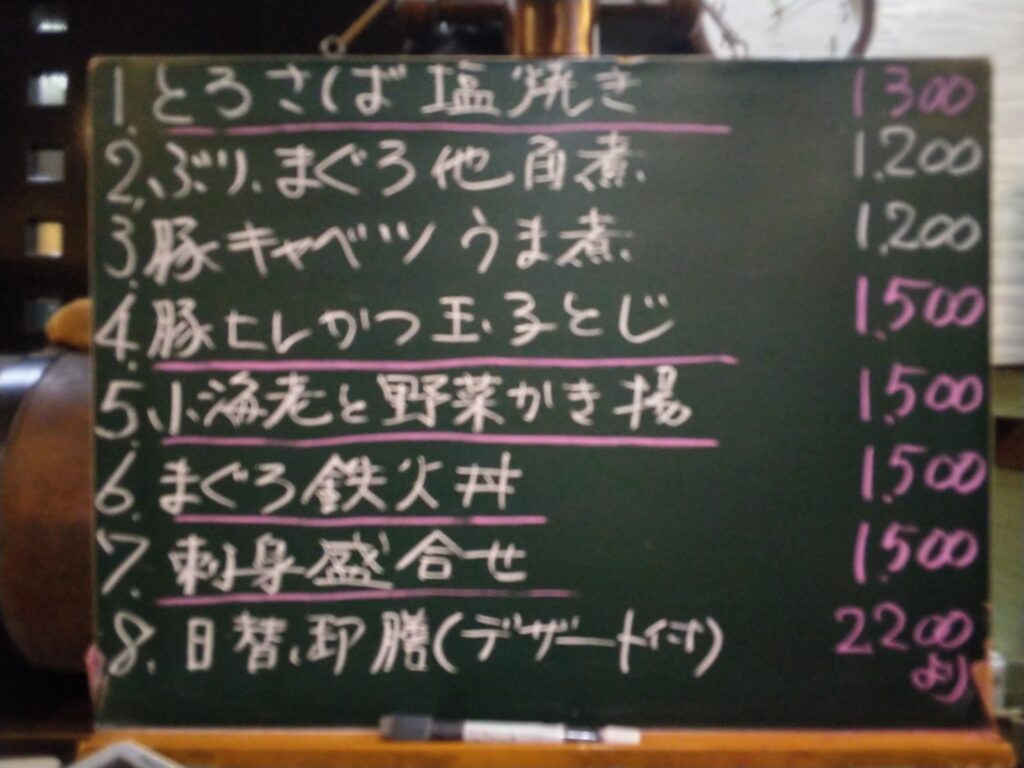 1. とろさば塩焼き 1300
2. ぶり、まぐろ他角煮 1,200
3. 豚キャベツうま煮 1,200
4. 豚ヒレかつ玉子とじ 1,500
5. 小海老と野菜かき揚 1,500
6. まぐろ鉄火丼 1,500
7. 刺身盛合せ 1,500
8. 日替 膳(デザート付) 2200
より